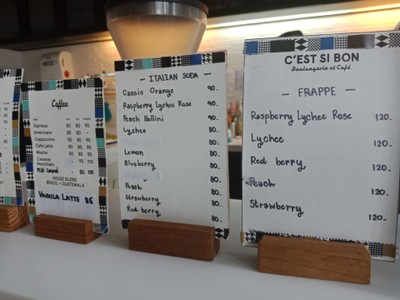 Coffee
Espresso
Americano
Cappuccino
Cafe Latte
Mocha
Caramel
Macchiato
Milk Caramel
HOUSE BLEND
BRAZIL + GUATEMALA
Vanilla Latte 85
— ITALIAN SODA —
Cassis Orange 90.
Raspberry Lychee Rose 90.
Peach Bellini 90.
Lychee 80.
Lemon 80.
Blueberry 80.
80.
Peach 80.
Strawberry 80.
Red berry 80.
C'EST SI BON
Boulangerie et Café
— FRAPPE —
Raspberry Lychee Rose 120.-
Lychee 120.-
Red berry 120.-
Peach 120.-
Strawberry 120.-